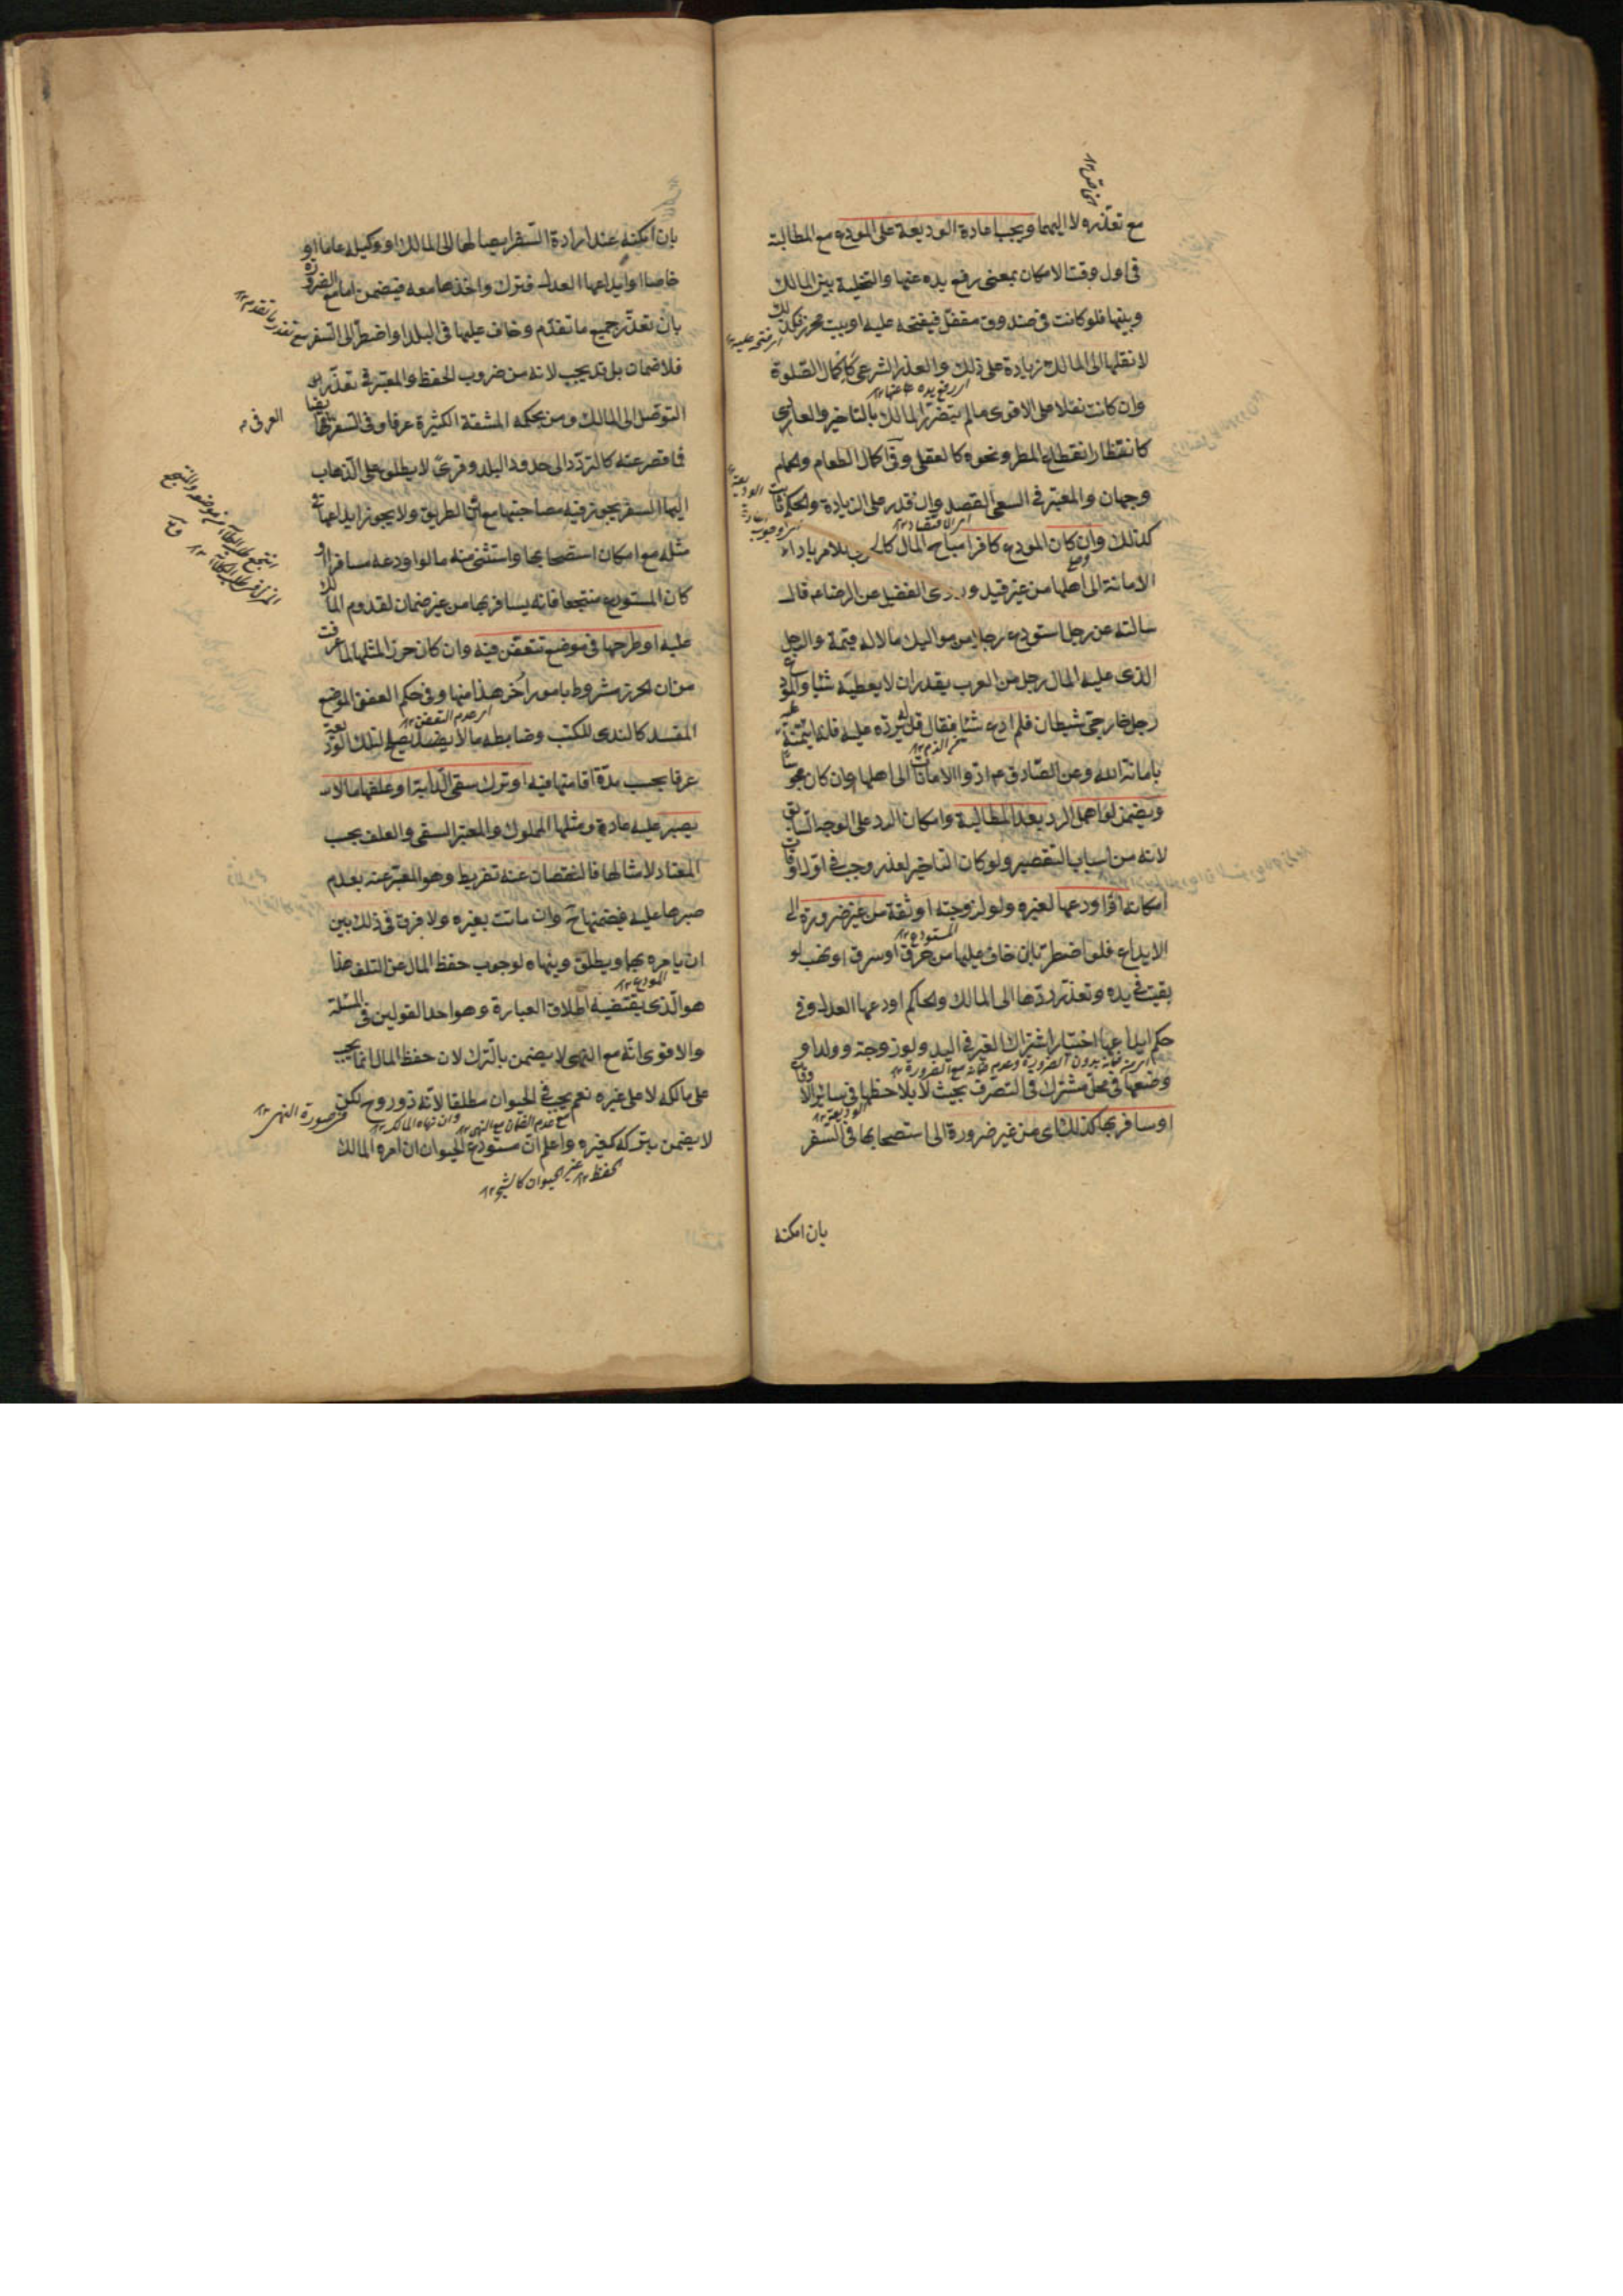 مع تعذّره لا اليهما ويجب اعادة الوديعة على المودع مع المطالبة
فى اول وقت الامكان بمعنى رفع يده عنها والتخلية بين المالك
وبينها فلو كانت فى صندوق مقفل فيفتحه عليه او بيت محرز فكذلك
لا نقلها الى المالك زيادة على ذلك والعذر الشرعى كاكمال الصلوة
وان كانت نفلا على الاقوى ما لم يتضرر المالك بالتاخير والعادى
كانتظار انقطاع المطر ونحوه كالعقلى وفى اكمال الطعام والحمام
وجهان والمعتبر فى السعى القصد وان قدر على الزيادة والحكم ثابت
كذلك وان كان المودع كافرا مباح المال كالحربى للامر باداء
الامانة الى اهلها من غير قيد وروى الفضيل عن الرضا ع قال
سالته عن رجل استودع رجلا من مواليك مالا له قيمة والرجل
الذى عليه المال رجل من العرب يقدر ان لا يعطيه شئا والمودع
رجل خارجى شيطان فلم ادع شئا فقال قل له يرده عليه فانه ائتمنه عليه
بامانة الله وعن الصادق ع ادوا الامانات الى اهلها وان كان مجوسيا
ويضمن لو اهمل الرد بعد المطالبة وامكان الرد على الوجه السابق
لانه من اسباب التقصير ولو كان التاخير لعذر وجب فى اول اوقات
امكانه او اودعها لغيره ولو لزوجته او ثقة من غير ضرورة الى
الايداع فلو اضطر بان خاف عليها من حرق او سرق او نهب لو
بقيت فى يده وتعذر ردها الى المالك والحاكم اودعها العدل وفى
حكم ايداعها اختيارا اشتراك الغير فى اليد ولو زوجته وولدا و
وضعها فى محل مشترك فى التصرف بحيث لا يلاحظها فى سائر الاوقات
او سافر بها كذلك اى من غير ضرورة الى استصحابها فى السفر
بان امكنه
بان امكنه عند ارادة السفر ايصالها الى المالك او وكيله عاما او
خاصا او ايداعها العدل فترك واخذها معه فيضمن اما مع الضرورة
بان تعذر جميع ما تقدم وخاف عليها فى البلد او اضطر الى السفر
فلا ضمان بل قد يجب لانه من ضروب الحفظ والمعتبر فى تعذر
التوصل الى المالك ومن بحكمه المشقة الكثيرة عرفا وفى السفر
فما قصر عنه كالتردد الى حدود البلد وقرى لا يطلق على الذهاب
اليها السفر يجوز فيه مصاحبتها مع امن الطريق ولا يجوز ايداعها فى
مثله مع امكان استصحابها واستثنى منه ما لو اودعه مسافرا او
كان المستودع منتجعا فانه يسافر بها من غير ضمان لقدوم المالك
عليه او طرحها فى موضع تتعفن فيه وان كان حرزا لمثلها لما عرفت
من ان الحرز مشروط بامور اخر هذا منها وفى حكم العفن الموضع
المفسد كالندى للكتب وضابطه ما لا يصلح لتلك الوديعة
عرفا بحسب مدة اقامتها فيه او ترك سقى الدابة او علفها ما لا
يصبر عليه عادة ومثلها المملوك والمعتبر السقى والعلف بحسب
المعتاد لامثالها فالنقصان عنه تفريط وهو المعبر عنه بعدم
صبرها عليه فيضمنها ح وان ماتت بغيره ولا فرق فى ذلك بين
ان يامره بها ويطلق وينهاه لوجوب حفظ المال عن التلف هذا
هو الذى يقتضيه اطلاق العبارة وهو احد القولين فى المسئلة
والاقوى انه مع النهى لا يضمن بالترك لان حفظ المال انما يجب
على مالكه لا على غيره نعم يجب فى الحيوان مطلقا لانه ذو روح لكن
لا يضمن بتركه كغيره واعلم ان مستودع الحيوان ان امره المالك